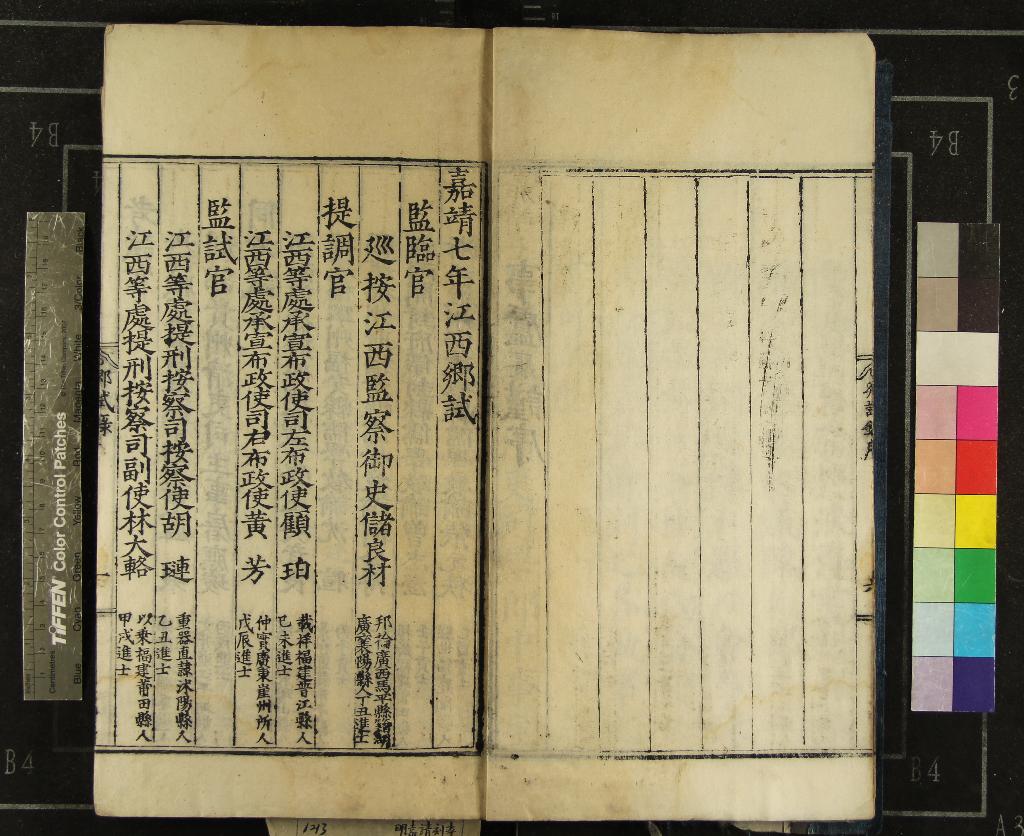 嘉靖七年江西鄉試
監臨官
巡按江西監察御史儲良材
邦掄廣西馬平縣籍湖
廣襄陽縣人丁丑進士
提調官
江西等處承宣布政使司左布政使顧 珀
載祥福建晉江縣人
己未進士
江西等處承宣布政使司右布政使黃 芳
仲實廣東崖州所人
戊辰進士
監試官
江西等處提刑按察司按察使胡 璉
重器直隸沭陽縣人
乙丑進士
江西等處提刑按察司副使林大輅
以乘福建莆田縣人
甲戌進士
鄉試錄
一
TIFFEN Color Control Patches
Centimetres
Blue
Cyan
Green
Yellow
Red
Magenta
White
3/Color
Black
B4
B4
B4
B4
3
A3
1213